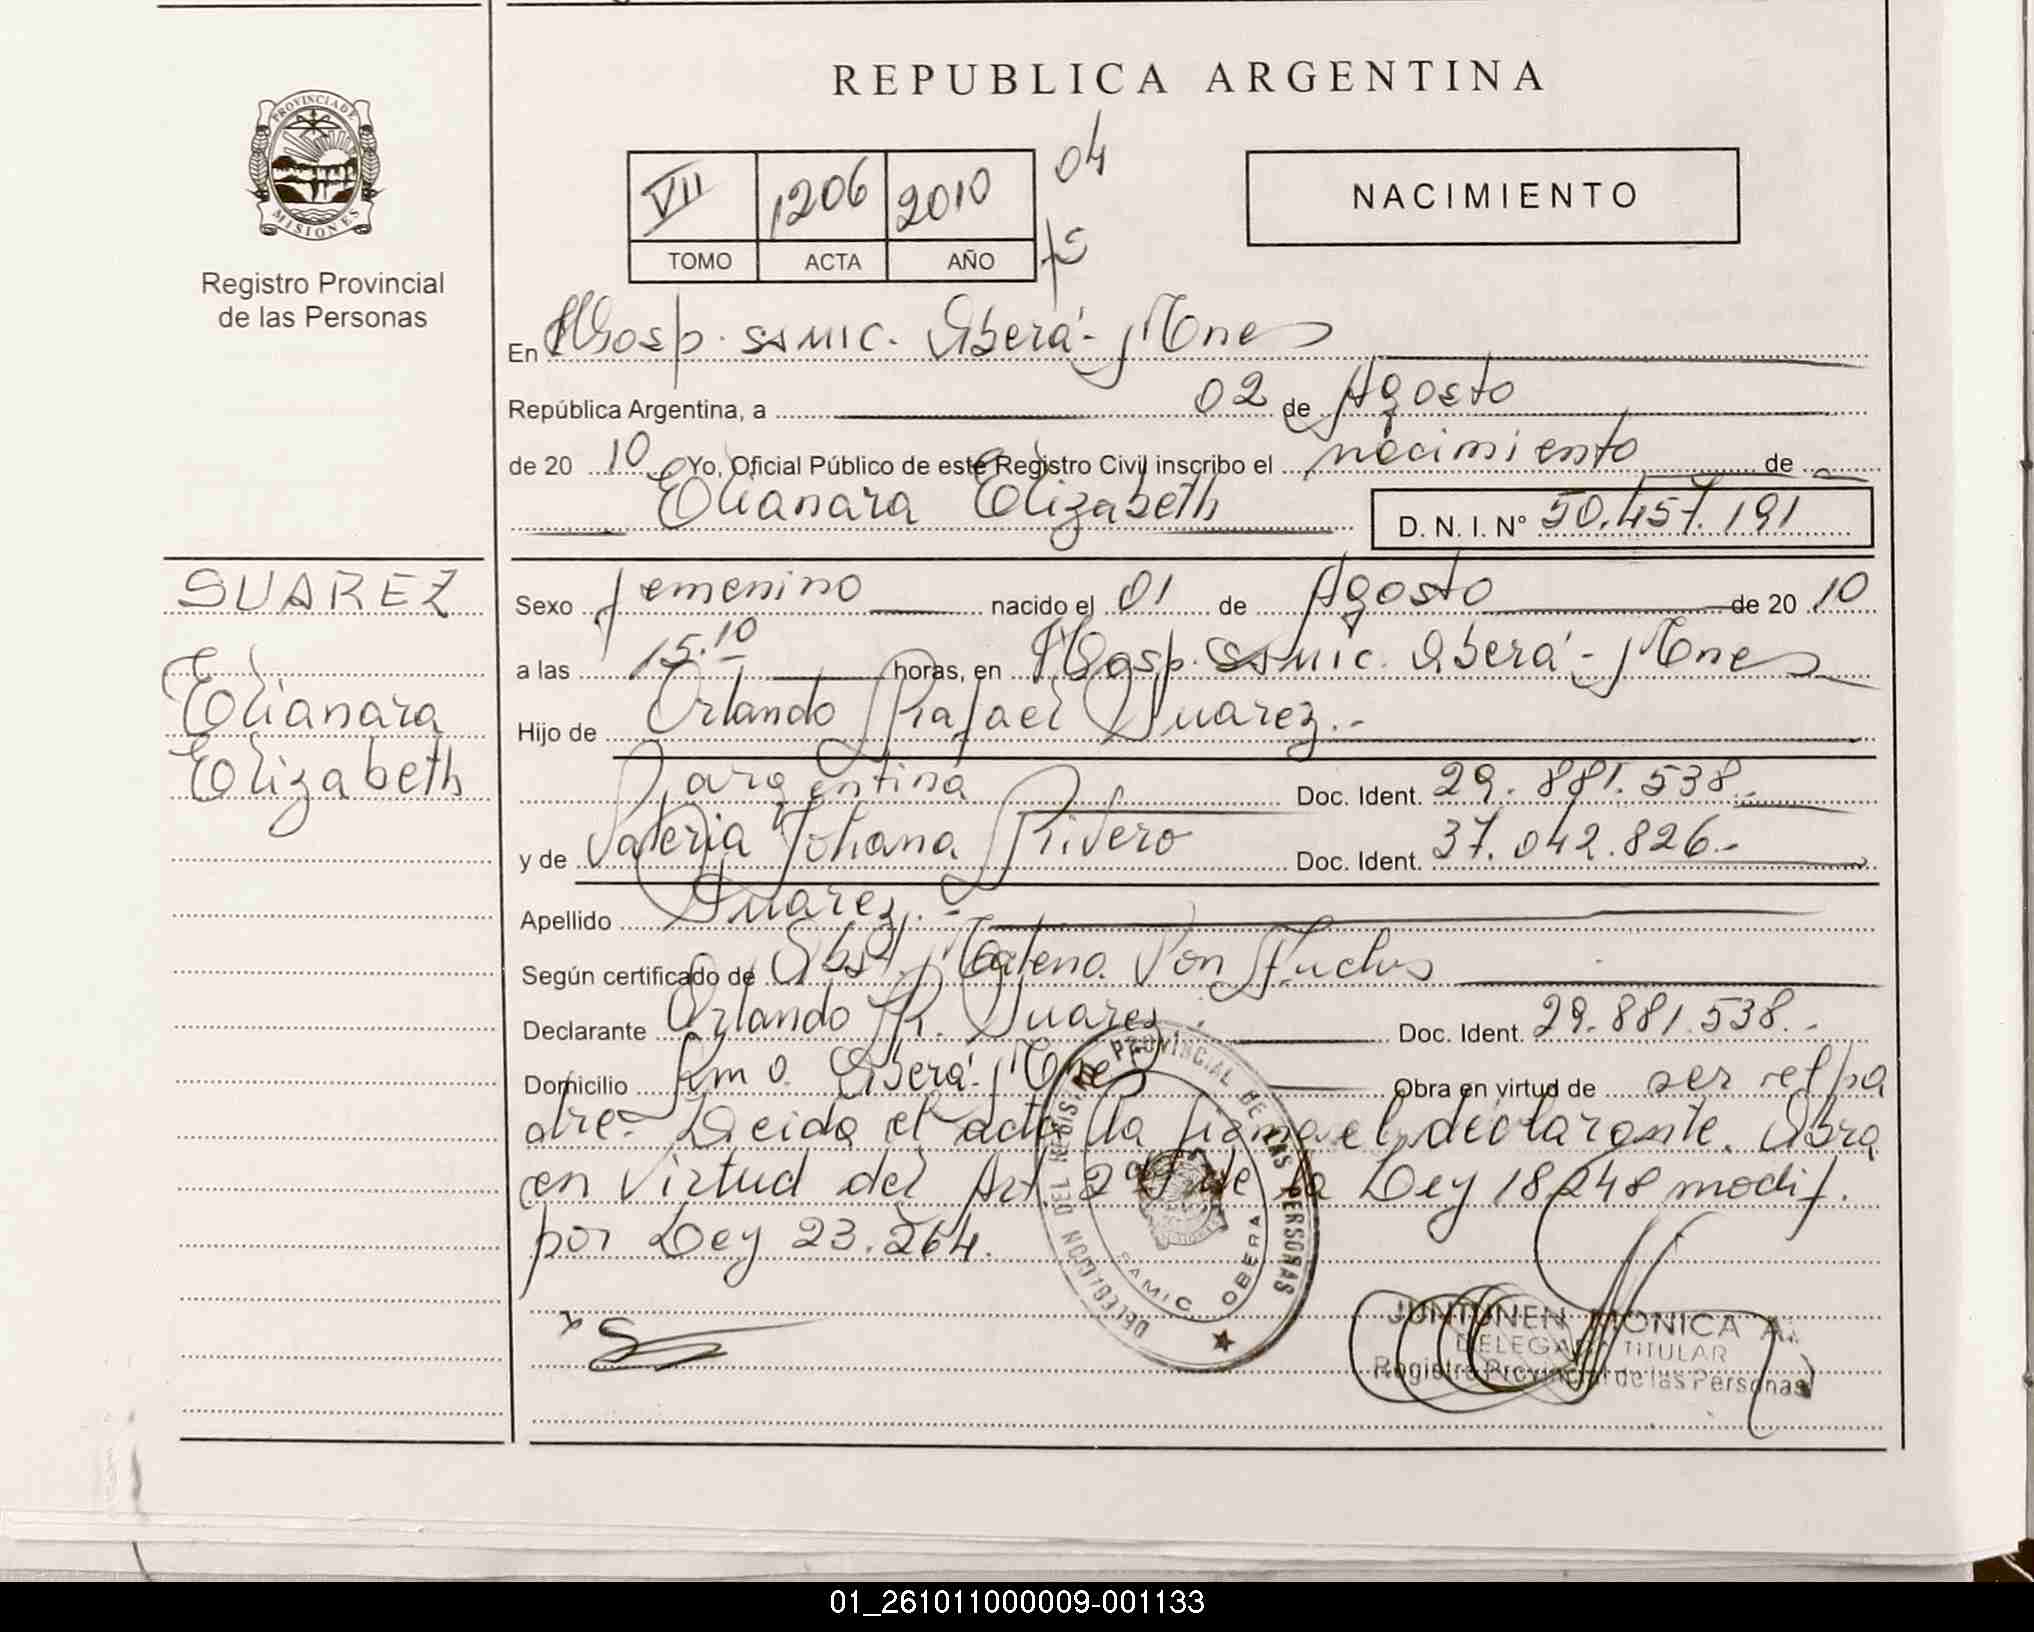 REPUBLICA ARGENTINA
PROVINCIA DE
MISIONES
Registro Provincial
de las Personas
VII 1206 2010 04
TOMO ACTA AÑO fs
NACIMIENTO
En Hosp. SAMIC. Oberá - Mnes
República Argentina, a 02 de Agosto
de 20 10 Yo, Oficial Público de este Registro Civil inscribo el nacimiento de
Elianara Elizabeth D. N. I. N° 50.457.191
SUAREZ
Elianara
Elizabeth
Sexo femenino nacido el 01 de Agosto de 20 10
a las 15.10 horas, en Hosp. SAMIC. Oberá - Mnes
Hijo de Orlando Rafael Suarez.-
argentina Doc. Ident. 29.881.538.-
y de Valeria Yohana Rivero Doc. Ident. 37.042.826.-
Apellido Suarez.-
Según certificado de Obst. Von Fuchs
Declarante Orlando R. Suarez Doc. Ident. 29.881.538.-
Domicilio Oberá - Mnes Obra en virtud de ser el pa
dre. Leida el acta la firma el declarante. Obra
en virtud del Art 2º de la Ley 18248 modif.
por Ley 23.264.
DELEGACION DEL REGISTRO PROVINCIAL DE LAS PERSONAS
SAMIC OBERA
JUNTUNEN MONICA A.
DELEGADA TITULAR
Registro Provincial de las Personas
01_261011000009-001133